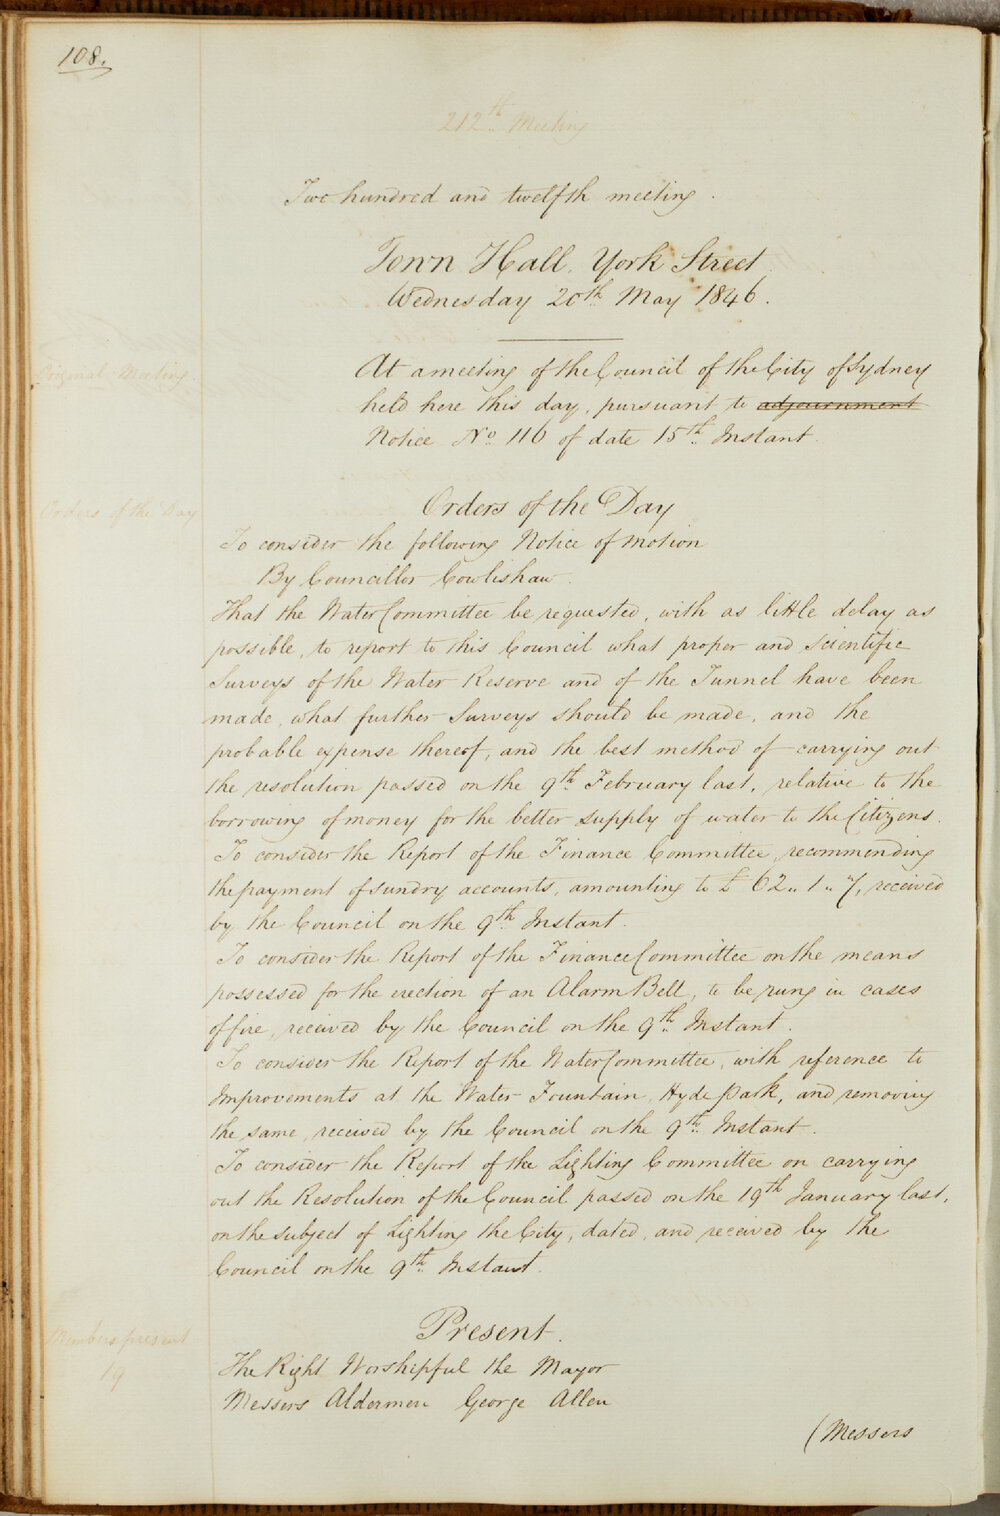 108.
212th Meeting
Two hundred and twelfth meeting.
Town Hall, York Street
Wednesday 20th May 1846.
Original Meeting
At a meeting of the Council of the City of Sydney
held here this day, pursuant to adjournment
Notice No 116 of date 15th Instant
Orders of the Day
Orders of the Day
To consider the following Notice of Motion
By Councillor Cowlishaw.
That the Water Committee be requested, with as little delay as
possible, to report to this Council what proper and scientific
Surveys of the Water Reserve and of the Tunnel have been
made, what further Surveys should be made, and the
probable expense thereof, and the best method of carrying out
the resolution passed on the 9th February last, relative to the
borrowing of money for the better supply of water to the Citizens.
To consider the Report of the Finance Committee, recommending
the payment of sundry accounts, amounting to £62..1..7, received
by the Council on the 9th Instant.
To consider the Report of the Finance Committee on the means
possessed for the erection of an Alarm Bell, to be rung in cases
of fire, received by the Council on the 9th Instant.
To consider the Report of the Water Committee, with reference to
Improvements at the Water Fountain, Hyde Park, and removing
the same, received by the Council on the 9th Instant.
To consider the Report of the Lighting Committee on carrying
out the Resolution of the Council passed on the 19th January last,
on the subject of Lighting the City, dated, and received by the
Council on the 9th Instant.
Members present
19
Present.
The Right Worshipful the Mayor
Messers Aldermen George Allen
(Messers